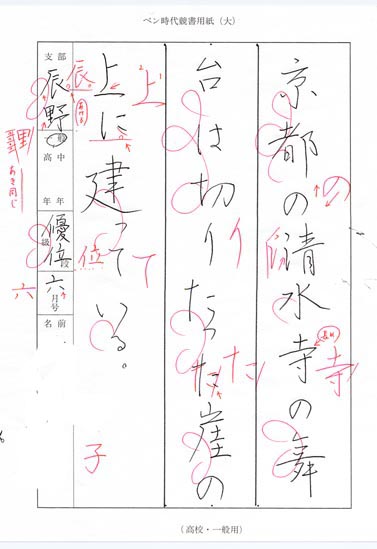 ペン時代競書用紙(大)
京都の清水寺の舞
の
寺
台は切りたった崖の
り
た
上に建っている。
上
て
子
支部
辰野
辰
高中般
年年
優位
級段
位
六月号
名前
野
あき同じ
六
(高校・一般用)